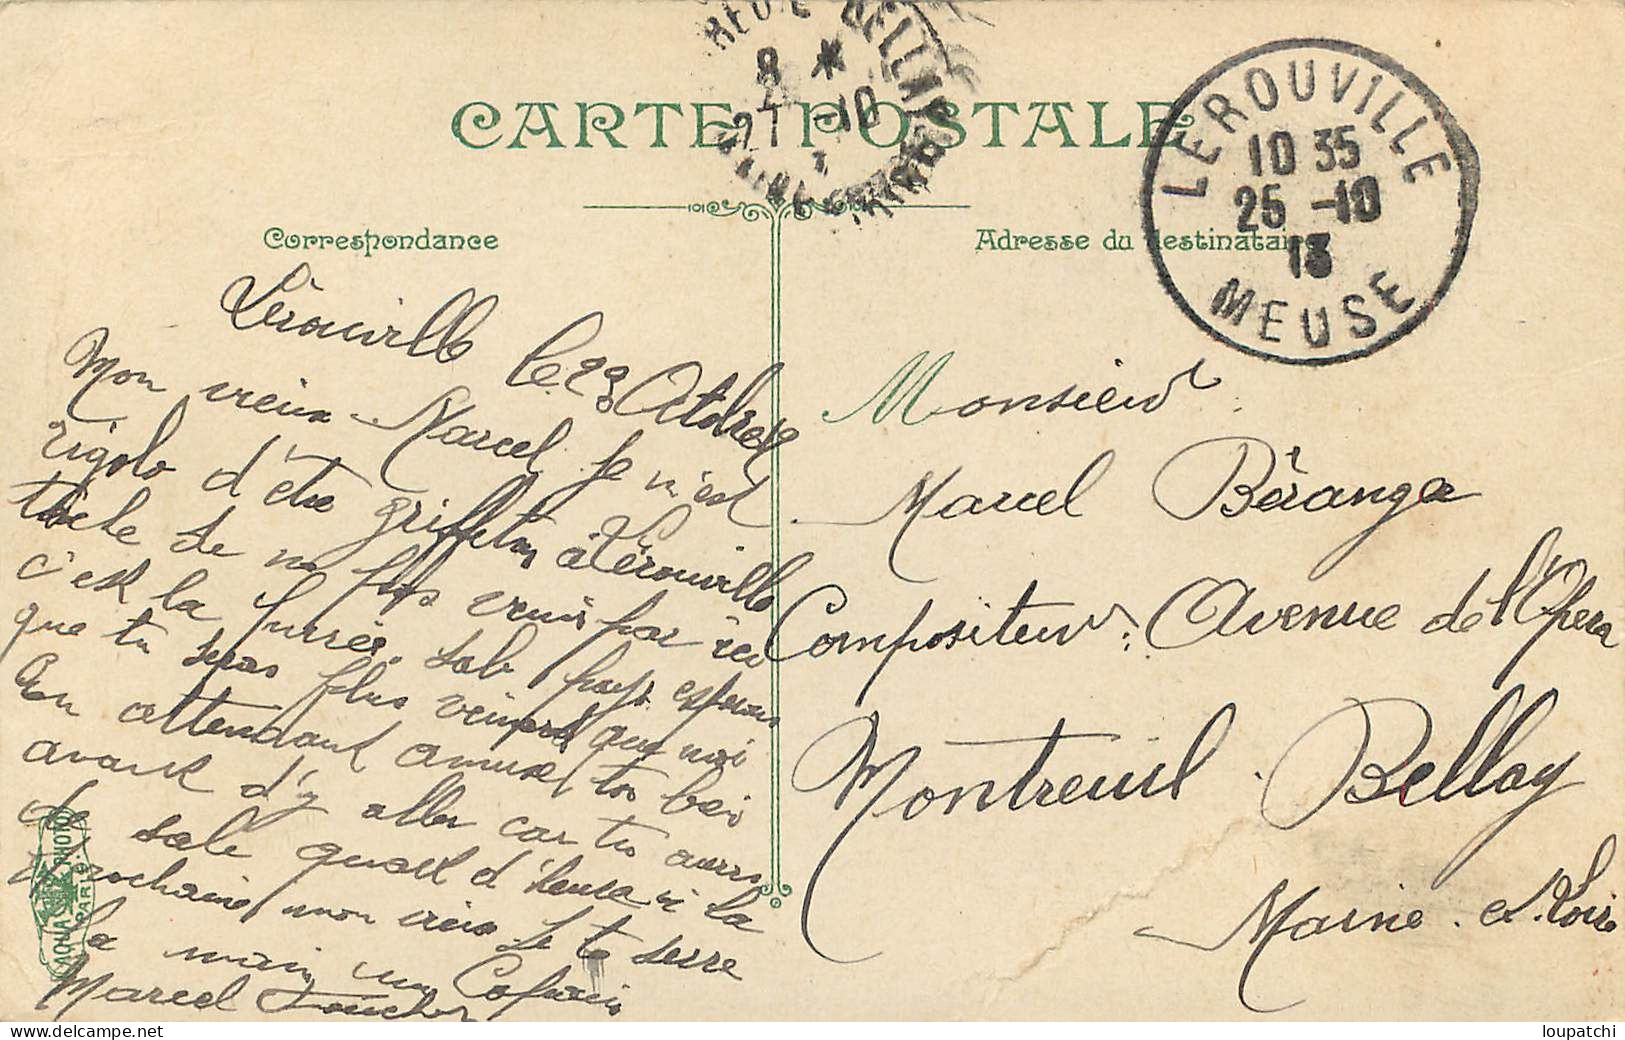 CARTE POSTALE
Correspondance
Adresse du destinataire
LEROUVILLE
10 35
25 -10
13
MEUSE
8 *
27 -10
Lérouville le 23 Octobre
Mon vieux Marcel je n'est
rigolo d'être griffeton à Lérouville
tâche de ne pas venir par ici
c'est la purrée. sal pays esperons
que tu seras plus veinard que moi
En attendant amuse toi bien
avant d'y aller car tu auras
de sale quart d'heure à la
prochaine mon vieux Je te serre
la main un Copain
Marcel
Monsieur
Marcel Béranger
Compositeur Avenue de l'Opera
Montreuil Bellay
Maine et Loire
AQUA PHOTO
PARIS
www.delcampe.net
loupatchi